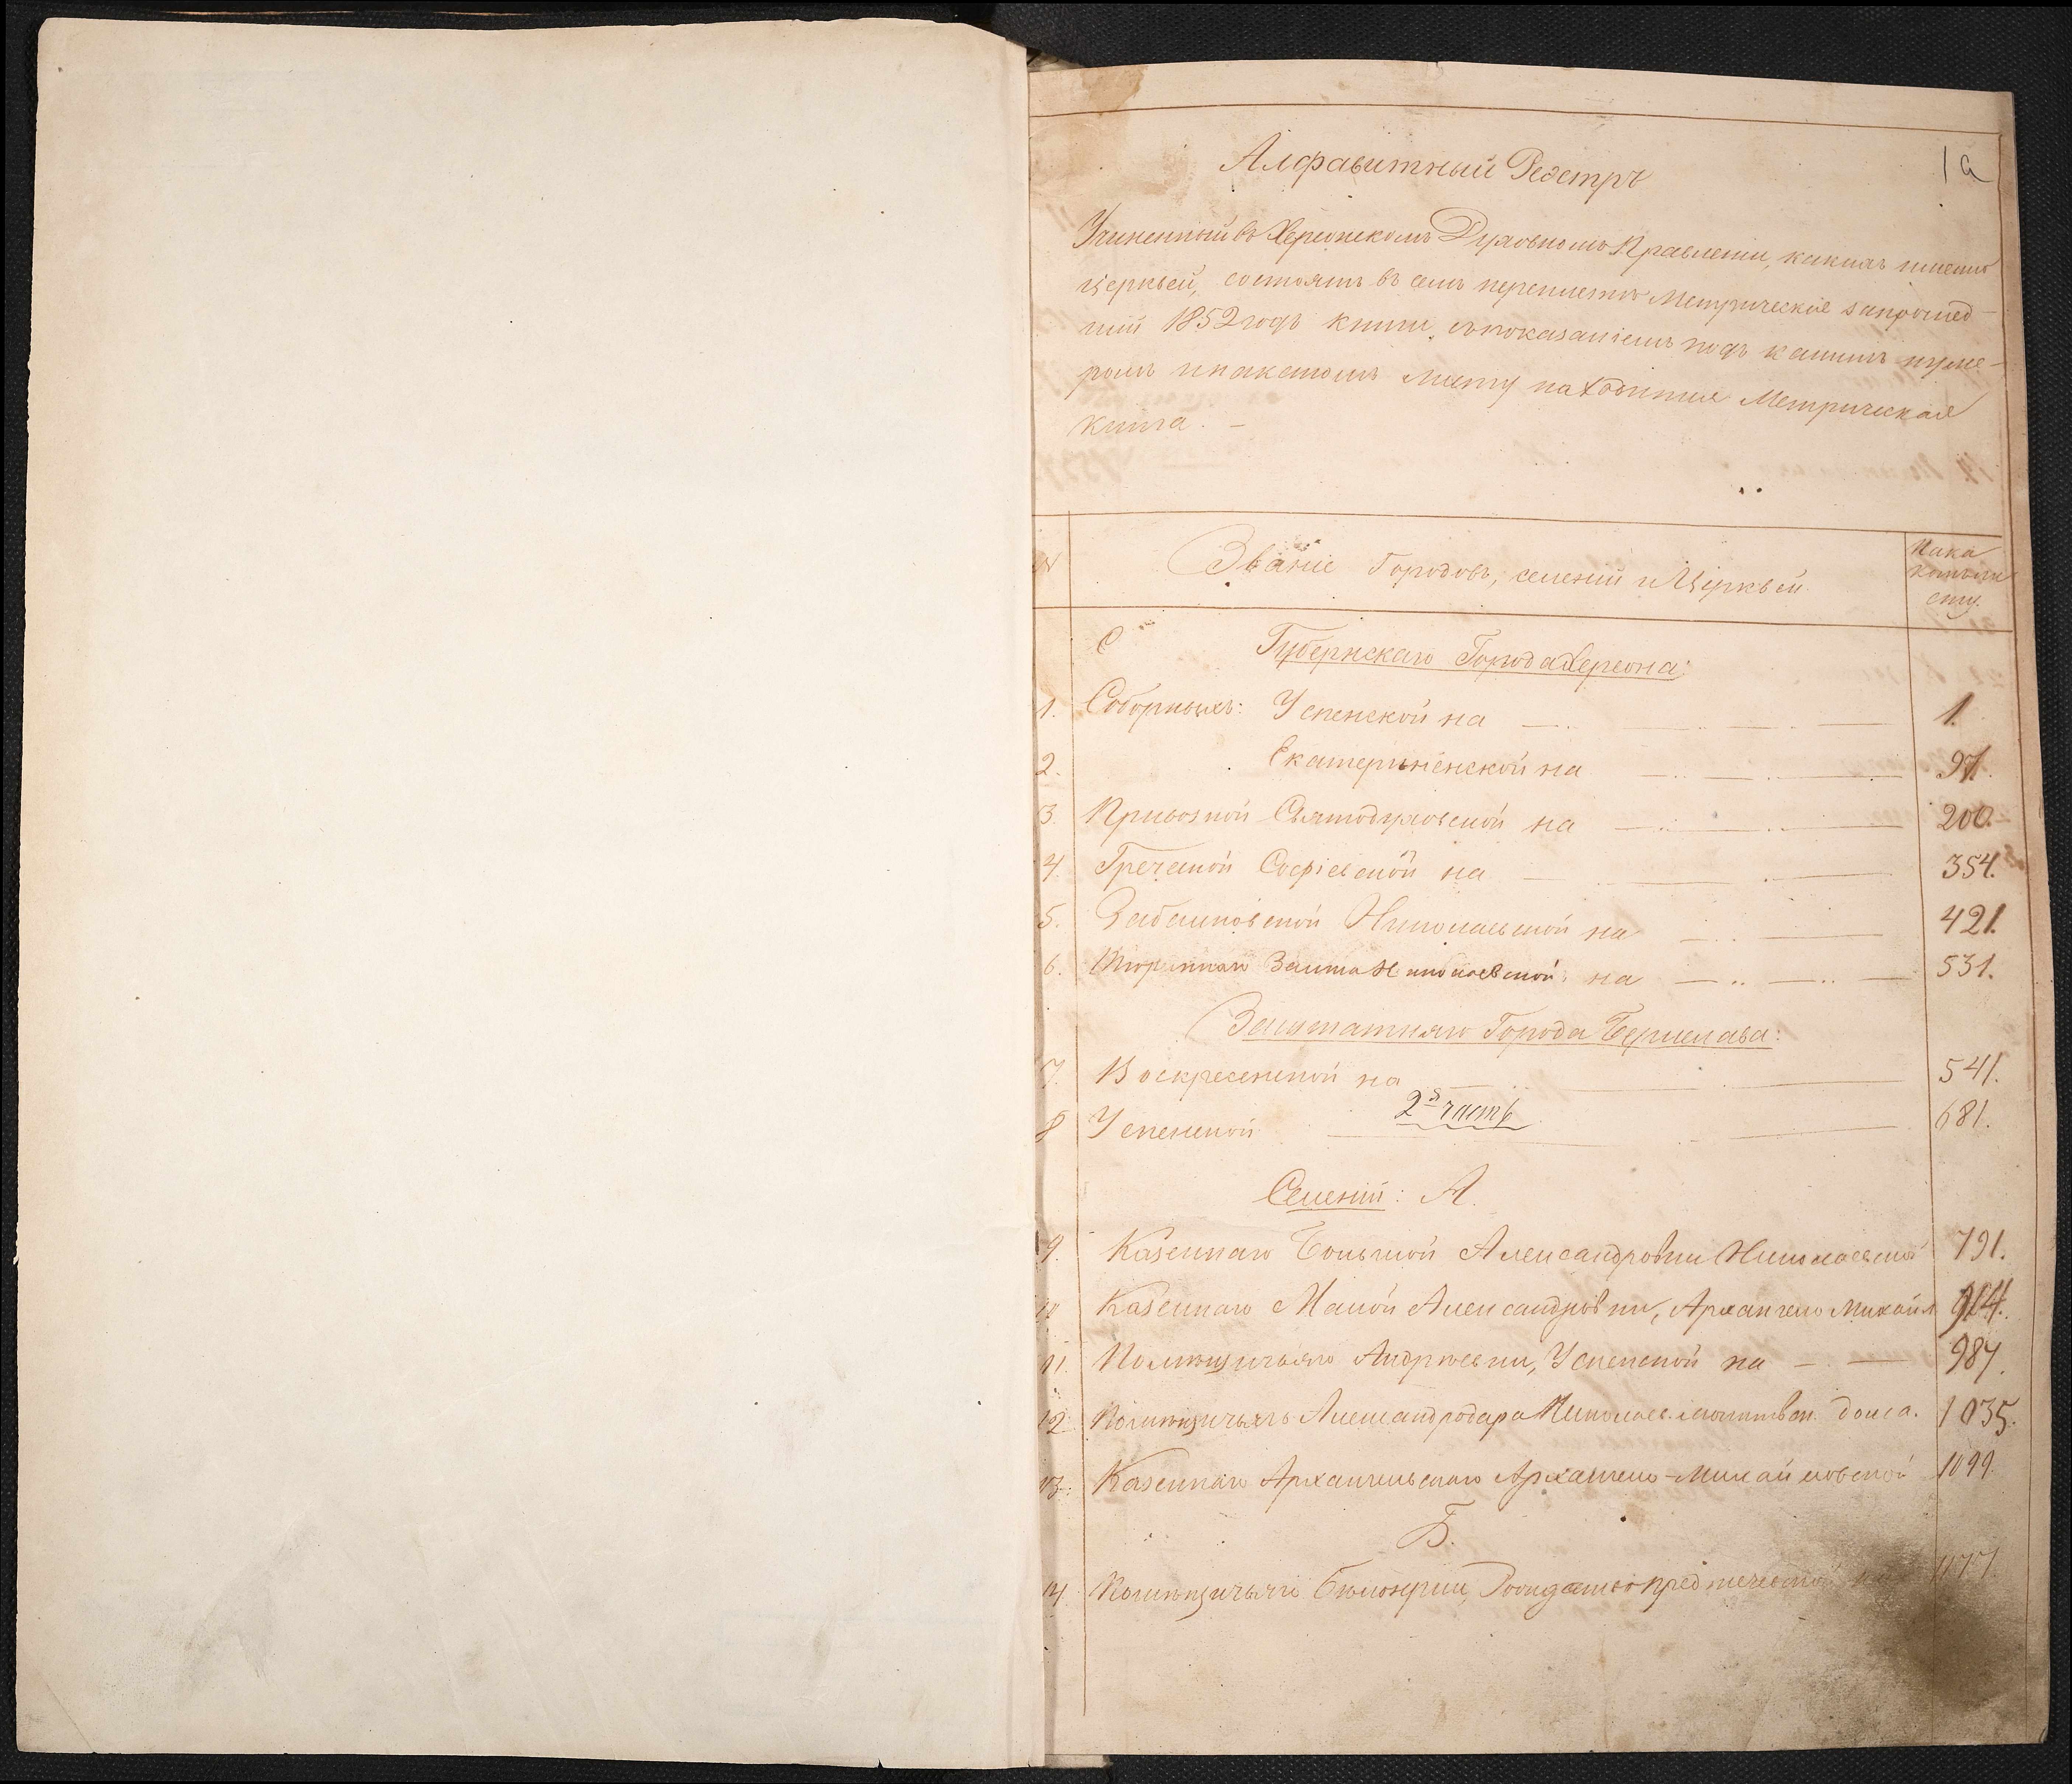 1а
Алфавитный Реэстръ
Учиненный въ Херсонскомъ Духовномъ Правленіи, какихъ именно
церквей, состоятъ въ семъ переплетѣ Метрическіе запрошед-
шій 1852 годъ книги, съ показаніемъ подъ какимъ нуме-
ромъ и на какомъ листу находится Метрическая
книга. —
№ Званіе Городовъ, селеній и Церквей На ка
комъ ли
сту.
С Губернскаго Города Херсона:
1. Соборныхъ: Успенской на 1.
2. Екатерининской на 97.
3. Привозной Святодуховской на 200.
4. Греческой Софіевской на 354.
5. Забалковской Николаевской на 421.
6. Тюремнаго Замка Николаевской на 531.
Заштатнаго Города Берислава:
7. Воскресенской на 541.
2я часть
8 Успенской 681.
Селеній: А.
9. Казеннаго Большой Александровки Николаевской 791.
10 Казеннаго Малой Александровки, Архангело Михайл 914.
11. Помѣщичьяго Андреевки, Успенской на 987.
12. Помѣщичьяго Александродара Николаев. молитвен. дома. 1035.
13. Казеннаго Архангельскаго Архангело-Михайловской 1099.
Б.
14. Помѣщичьяго Бѣлозерки, Рождество предтечевской 1177.